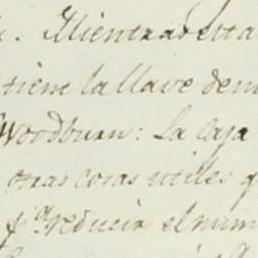 Mientras esta
tiene la llave de mi
Woodburn: La caja
otras cosas utiles q
pª reducir el num